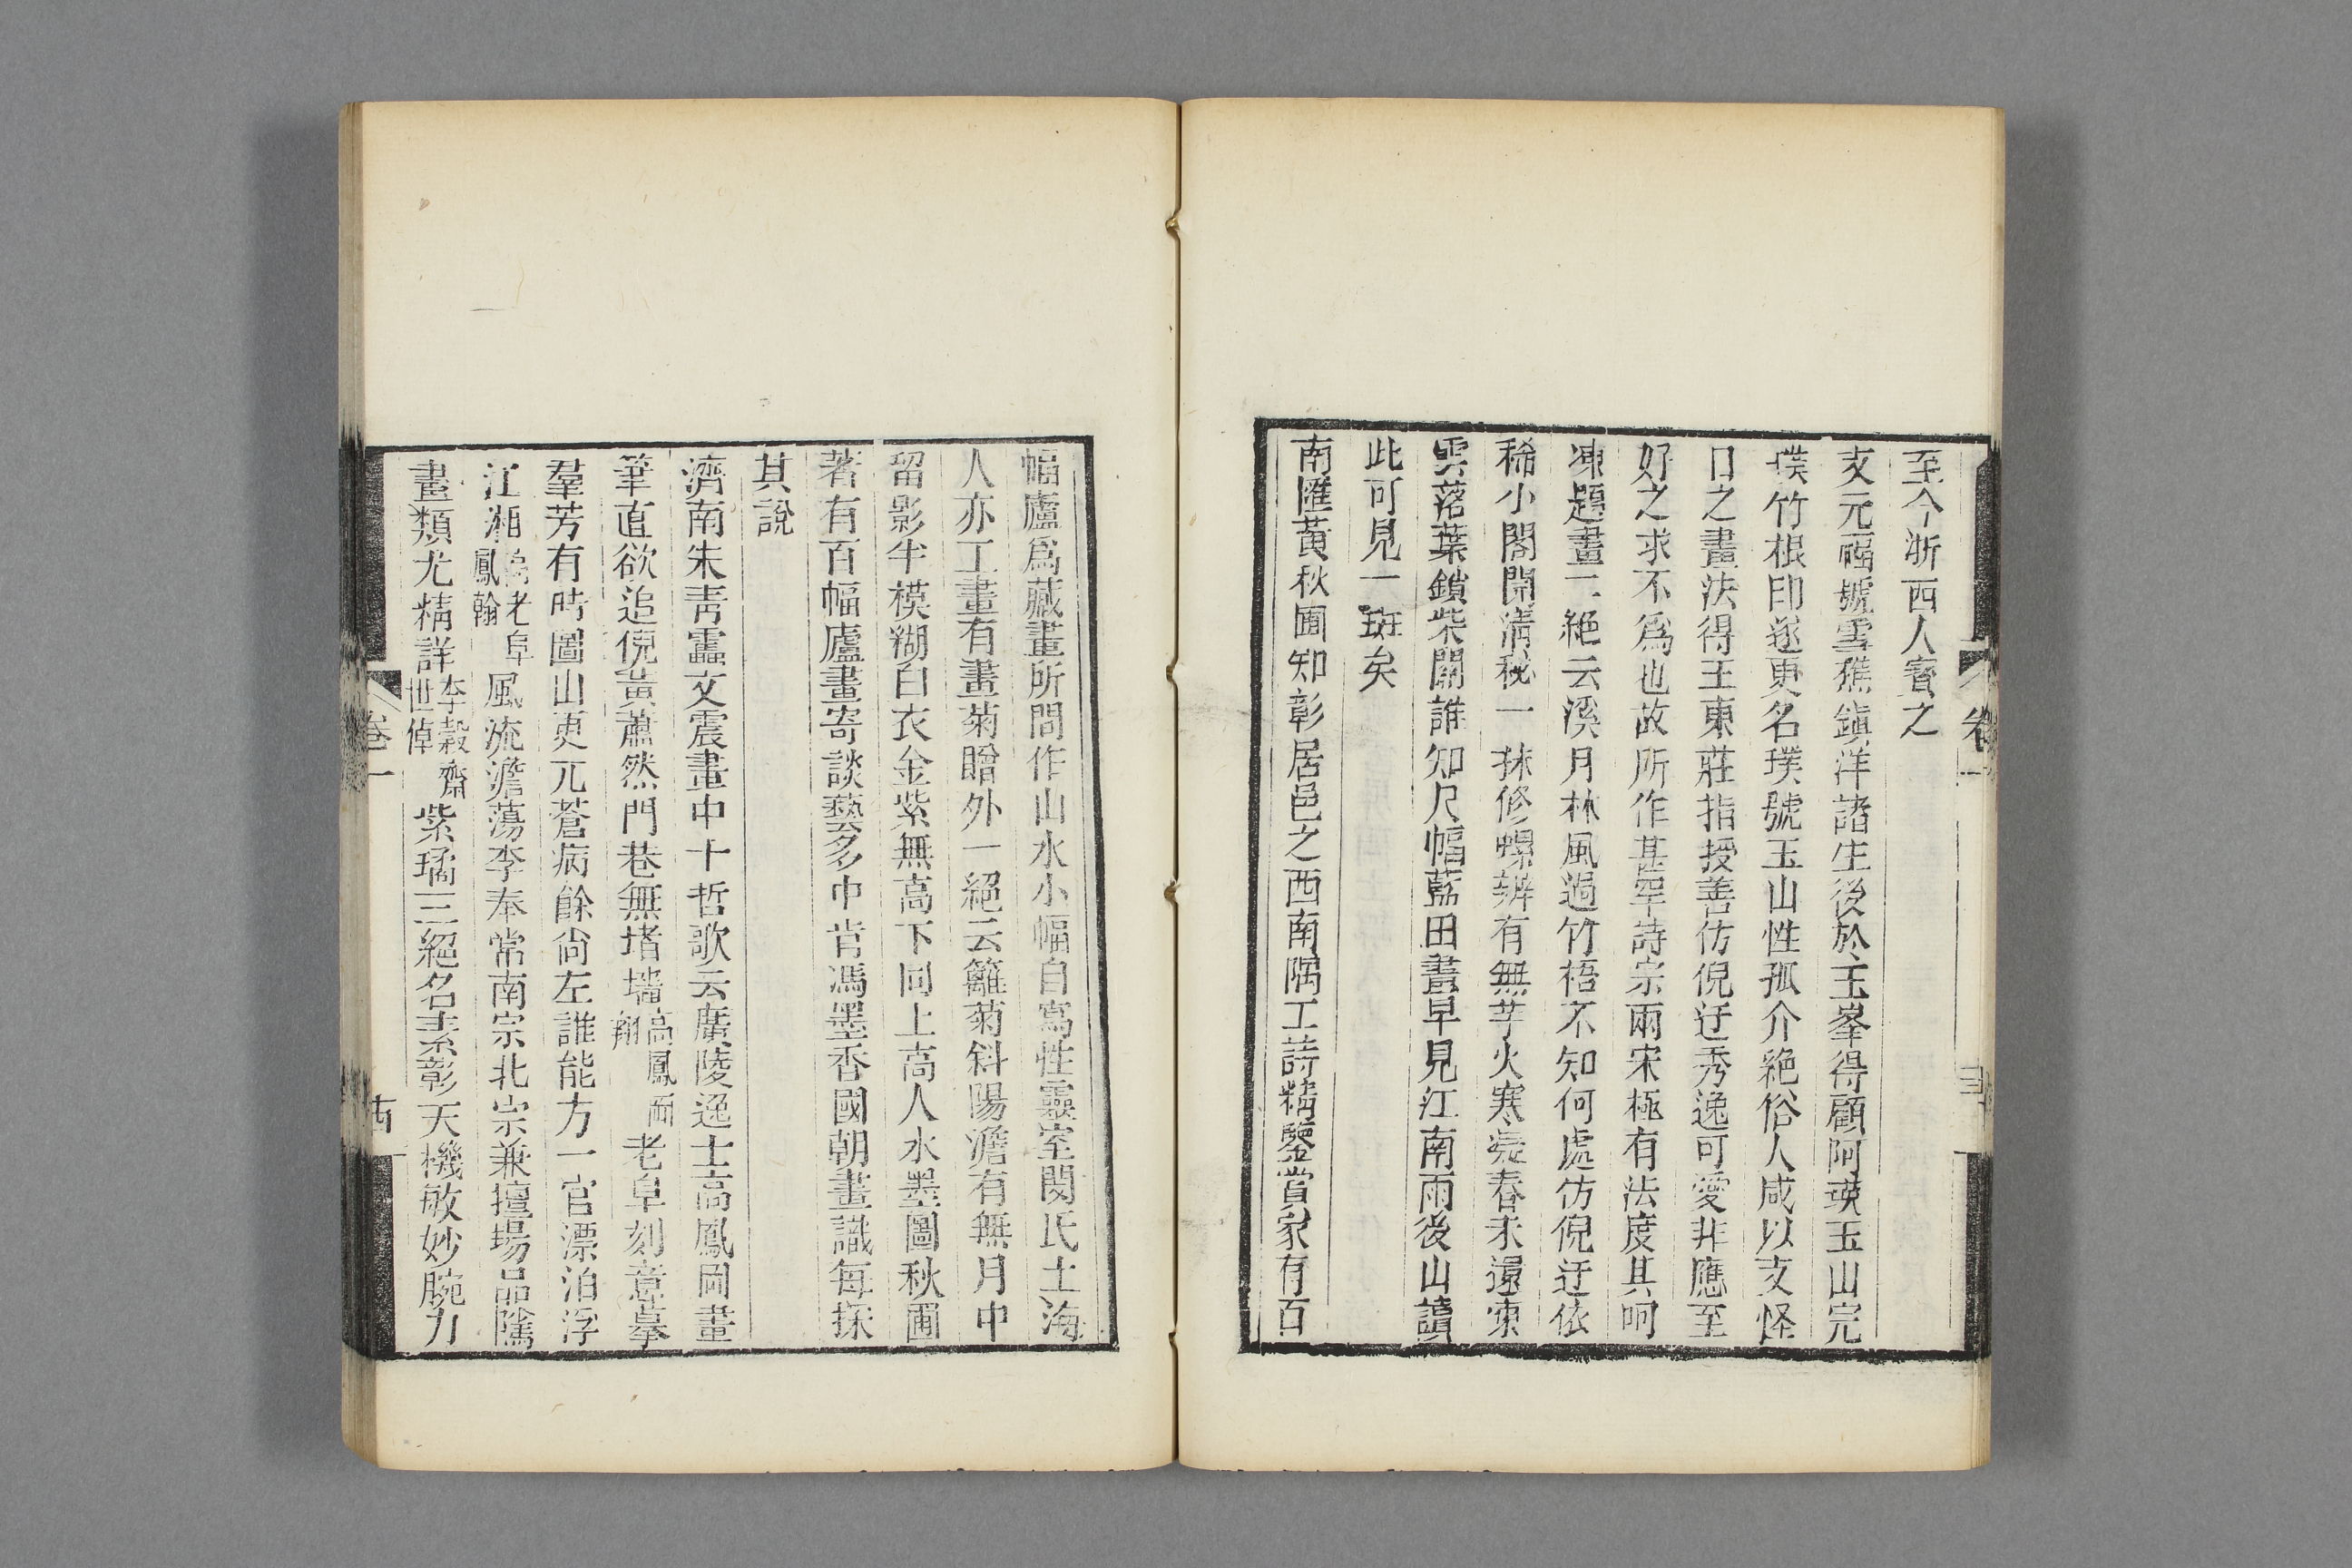 至今浙西人寶之
支元福號雪樵鎭洋諸生後於玉峯得顧阿瑛玉山完
璞竹根印遂更名璞號玉山性孤介絕俗人咸以支怪
目之畫法得王東莊指授善仿倪迂秀逸可愛非應至
好之求不爲也故所作甚罕詩宗兩宋極有法度其呵
凍題畫二絕云溪月林風過竹梧不知何處仿倪迂依
稀小閣開淸秘一抹修螺辨有無芋火寒凝春未還凍
雲落葉鎖柴關誰知尺幅藍田畫早見江南雨後山讀
此可見一斑矣
南匯黃秋圃知彰居邑之西南隅工詩精鑒賞家有百
幅廬爲藏畫所間作山水小幅自寫性靈室閔氏土海
人亦工畫有畫菊贈外一絕云籬菊斜陽澹有無月中
留影半模糊白衣金紫無高下同上高人水墨圖秋圃
著有百幅廬畫寄談藝多中肯馮墨香國朝畫識每採
其說
濟南朱青靁文震畫中十哲歌云廣陵逸士高鳳岡畫
筆直欲追倪黃蕭然門巷無堵墻高鳳岡翔老阜刻意摹
羣芳有時圖山更兀蒼病餘尙左誰能方一官漂泊浮
江湘高老阜鳳翰風流澹蕩李奉常南宗北宗兼擅場品隲
畫類尤精詳李穀齋世倬紫璚三絕名素彰天機敏妙腕力
卷一
卷一